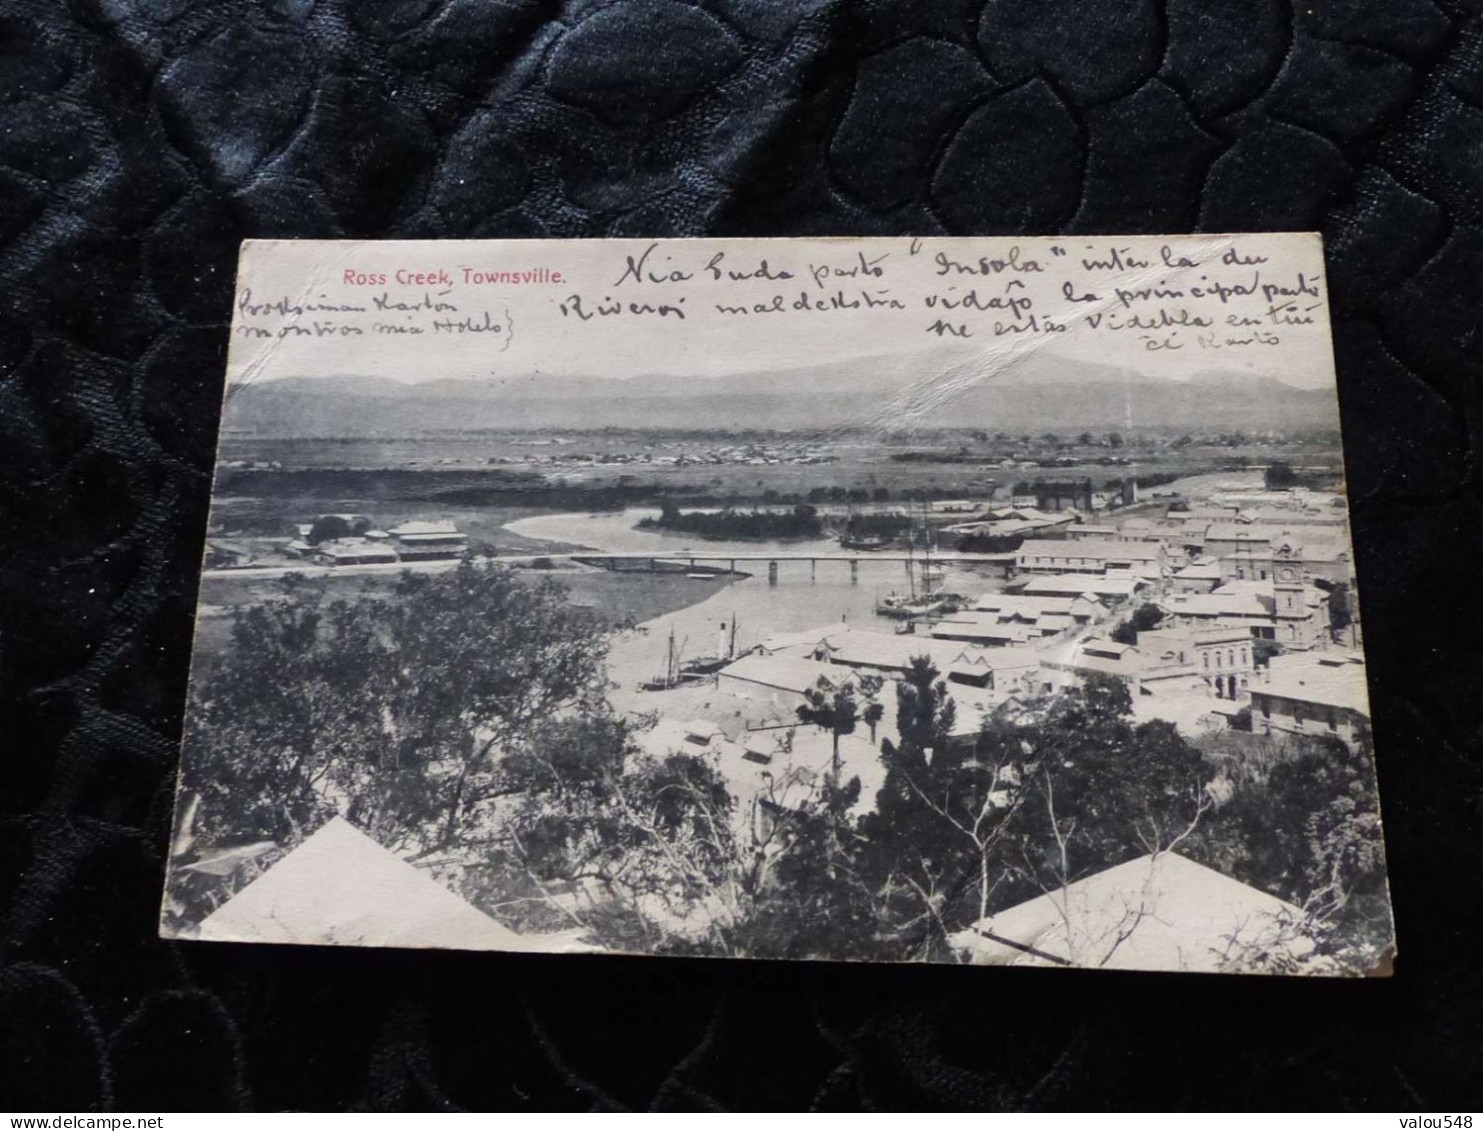 Ross Creek, Townsville.
Nia Suda parto "Insola" inter la du
Riveroj maldekstra vidajo la principa parto
ne estas videbla en tiu
ci Karto
Proksiman Karton
montros mia Hotelo
valou548